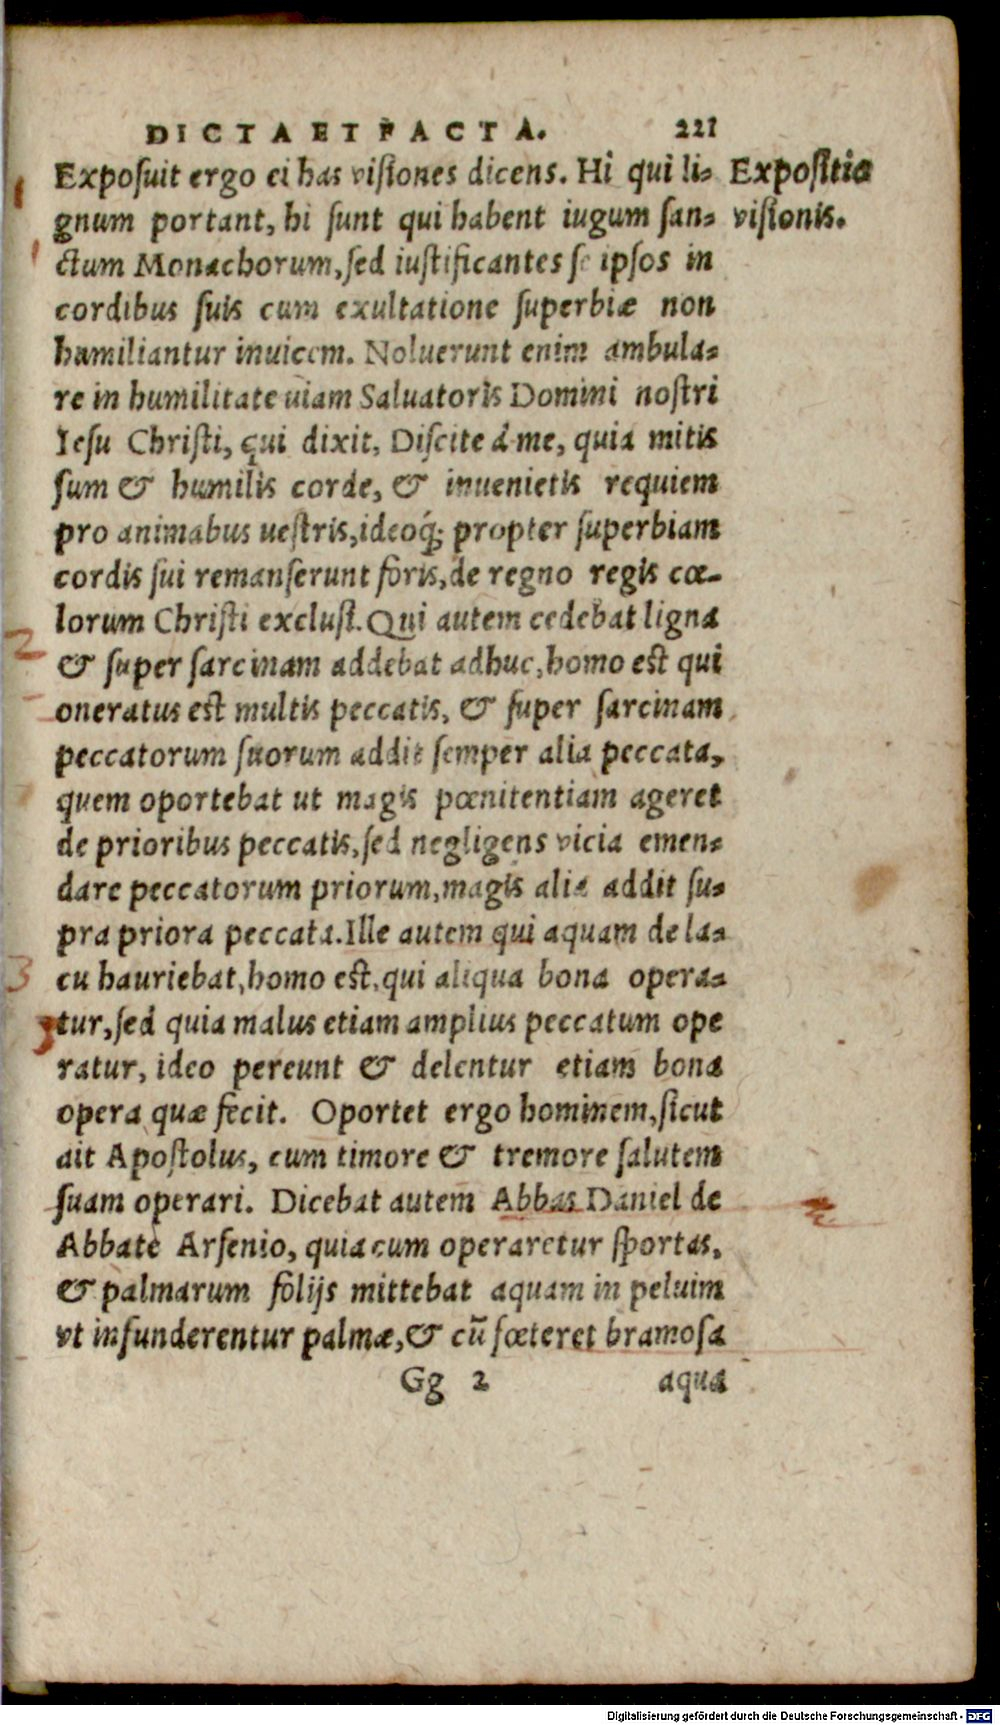 DICTA ET FACTA. 221
Exposuit ergo ei has visiones dicens. Hi qui li-
Expositio
gnum portant, hi sunt qui habent iugum san-
visionis.
1
ctum Monachorum, sed iustificantes se ipsos in
cordibus suis cum exultatione superbiæ non
humiliantur inuicem. Noluerunt enim ambula-
re in humilitate uiam Saluatoris Domini nostri
Iesu Christi, qui dixit, Discite à me, quia mitis
sum & humilis corde, & inuenietis requiem
pro animabus uestris, ideoq́; propter superbiam
cordis sui remanserunt foris, de regno regis cœ-
lorum Christi exclusi. Qui autem cedebat ligna
2
& super sarcinam addebat adhuc, homo est qui
oneratus est multis peccatis, & super sarcinam
peccatorum suorum addit semper alia peccata,
quem oportebat ut magis pœnitentiam ageret
de prioribus peccatis, sed negligens vicia emen-
dare peccatorum priorum, magis alia addit su-
pra priora peccata. Ille autem qui aquam de la-
3
cu hauriebat, homo est, qui aliqua bona opera-
tur, sed quia malus etiam amplius peccatum ope
ratur, ideo pereunt & delentur etiam bona
opera quæ fecit. Oportet ergo hominem, sicut
ait Apostolus, cum timore & tremore salutem
suam operari. Dicebat autem Abbas Daniel de
Abbate Arsenio, quia cum operaretur sportas,
& palmarum folijs mittebat aquam in peluim
vt infunderentur palmæ, & cũ fœteret bramosa
Gg 2 aqua
Digitalisierung gefördert durch die Deutsche Forschungsgemeinschaft - DFG